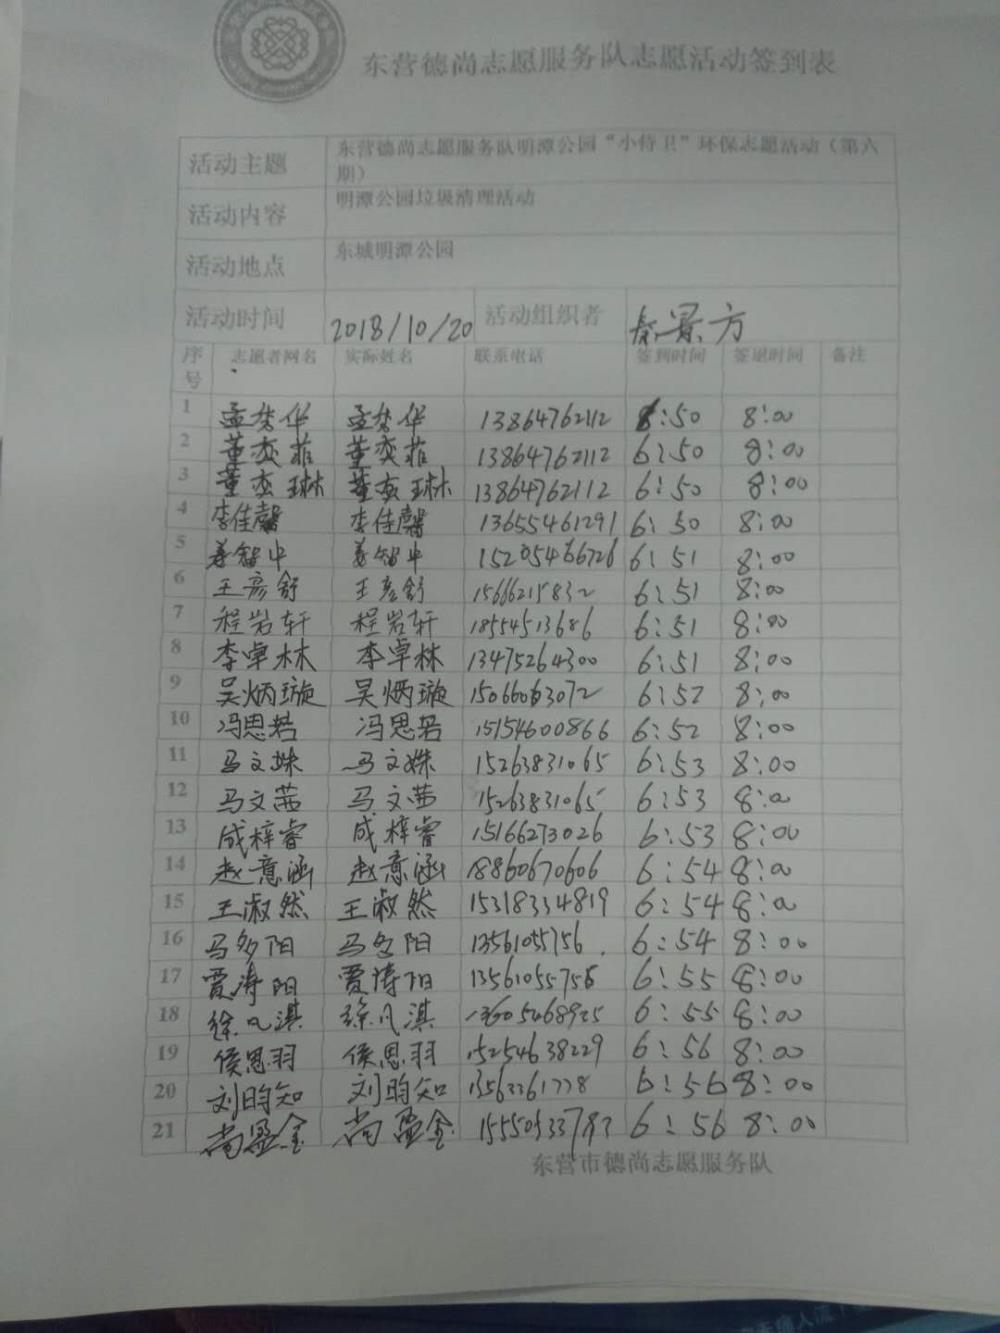 东营德尚志愿服务队志愿活动签到表
活动主题 东营德尚志愿服务队明潭公园“小侍卫”环保志愿活动（第六
期）
活动内容 明潭公园垃圾清理活动
活动地点 东城明潭公园
活动时间 2018/10/20 活动组织者 景方
序号 志愿者网名 实际姓名 联系电话 签到时间 签退时间 备注
1 孟梦华 孟梦华 13864762112 6:50 8:00
2 董奕菲 董奕菲 13864762112 6:50 8:00
3 董奕琳 董奕琳 13864762112 6:50 8:00
4 李佳馨 李佳馨 13655461291 6:50 8:00
5 姜智中 姜智中 15205466726 6:51 8:00
6 王彦舒 王彦舒 15666215832 6:51 8:00
7 程岩轩 程岩轩 18554513686 6:51 8:00
8 李卓林 李卓林 13475264300 6:51 8:00
9 吴炳璇 吴炳璇 15066063072 6:52 8:00
10 冯思若 冯思若 15154600866 6:52 8:00
11 马文姝 马文姝 15263831065 6:53 8:00
12 马文茜 马文茜 15263831065 6:53 8:00
13 成梓睿 成梓睿 15166273026 6:53 8:00
14 赵意涵 赵意涵 18860670606 6:54 8:00
15 王淑然 王淑然 15318334819 6:54 8:00
16 马多阳 马多阳 13561055756 6:54 8:00
17 贾涛阳 贾涛阳 13561055756 6:55 8:00
18 徐凡淇 徐凡淇 13605468925 6:55 8:00
19 侯思羽 侯思羽 15254638229 6:56 8:00
20 刘昀知 刘昀知 6:56 8:00
21 尚盈金 尚盈金 6:56 8:00
东营市德尚志愿服务队